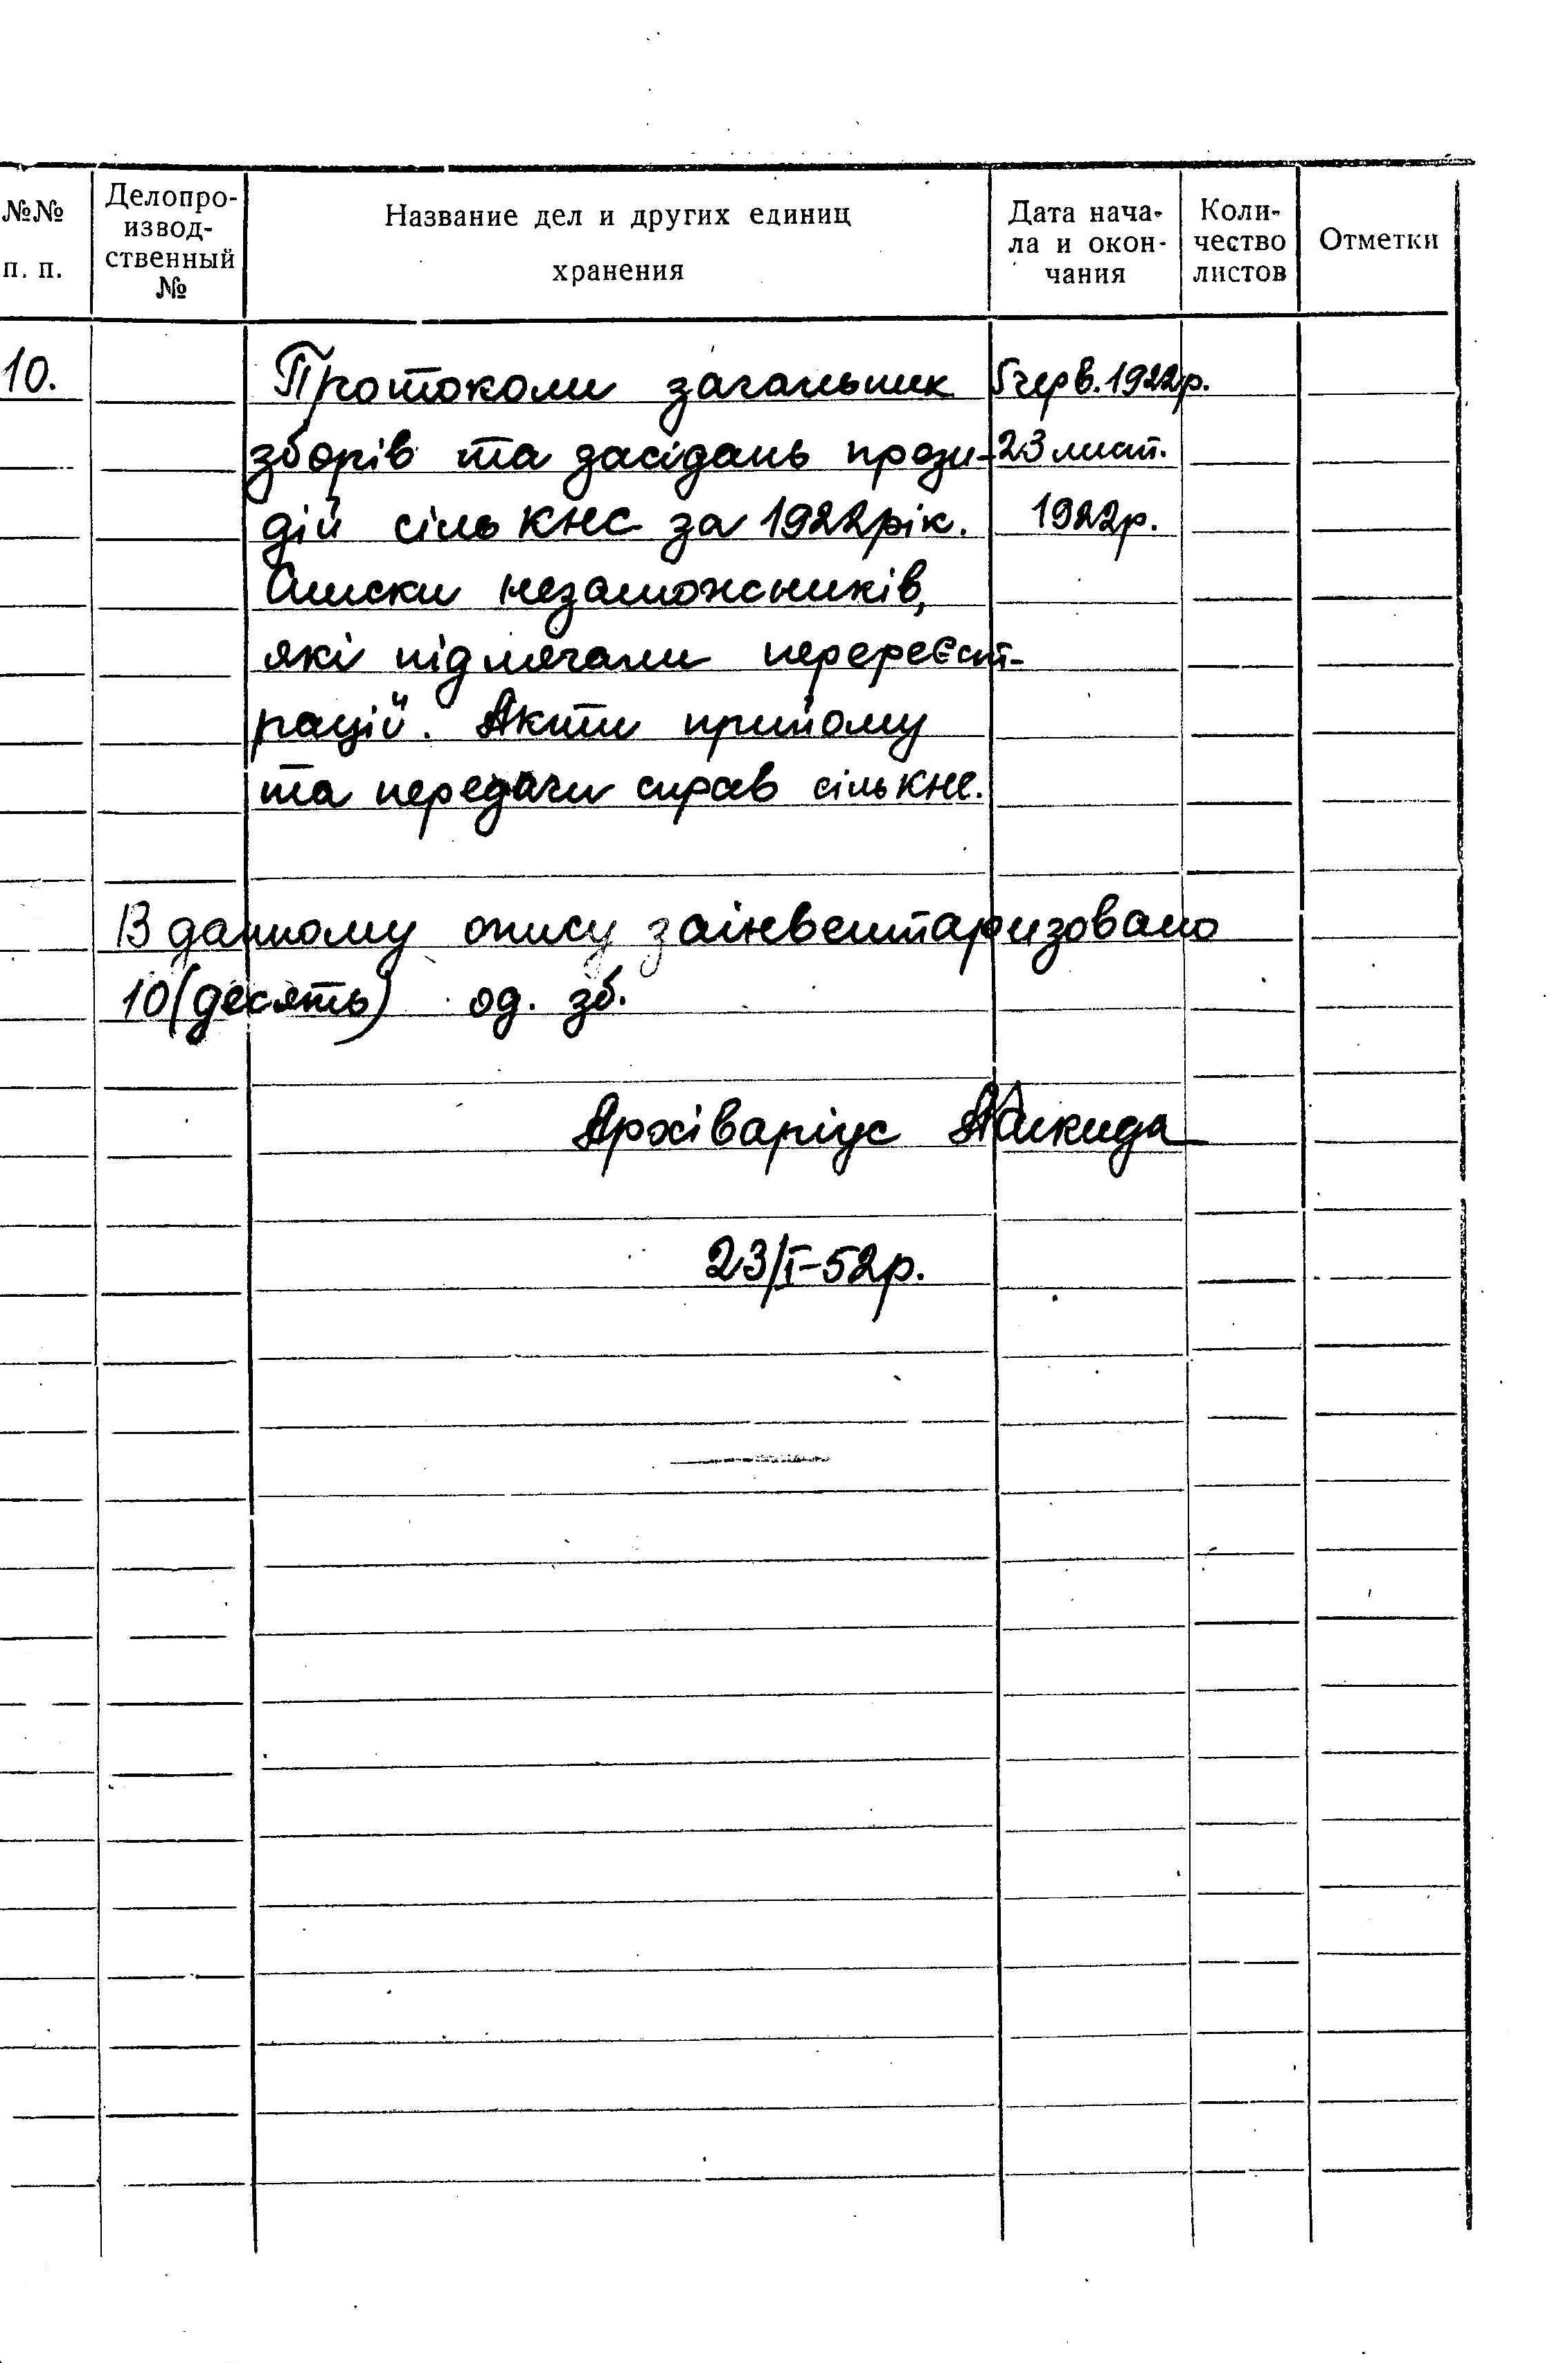 №№ п. п.
Делопро-
извод-
ственный
№
Название дел и других единиц
хранения
Дата нача-
ла и окон-
чания
Коли-
чество
листов
Отметки
10. Протоколи загальних 5 черв. 1922р.
зборів та засідань прези- 23 лист.
дій сіль КНС за 1922 рік. 1922р.
Списки незаможників,
які підлягали перереєст-
рацій. Акти прийому
та передачи справ сількнс.
В данному опису заінвентаризовано
10 (десять) од. зб.
Архіваріус
23/I-52р.